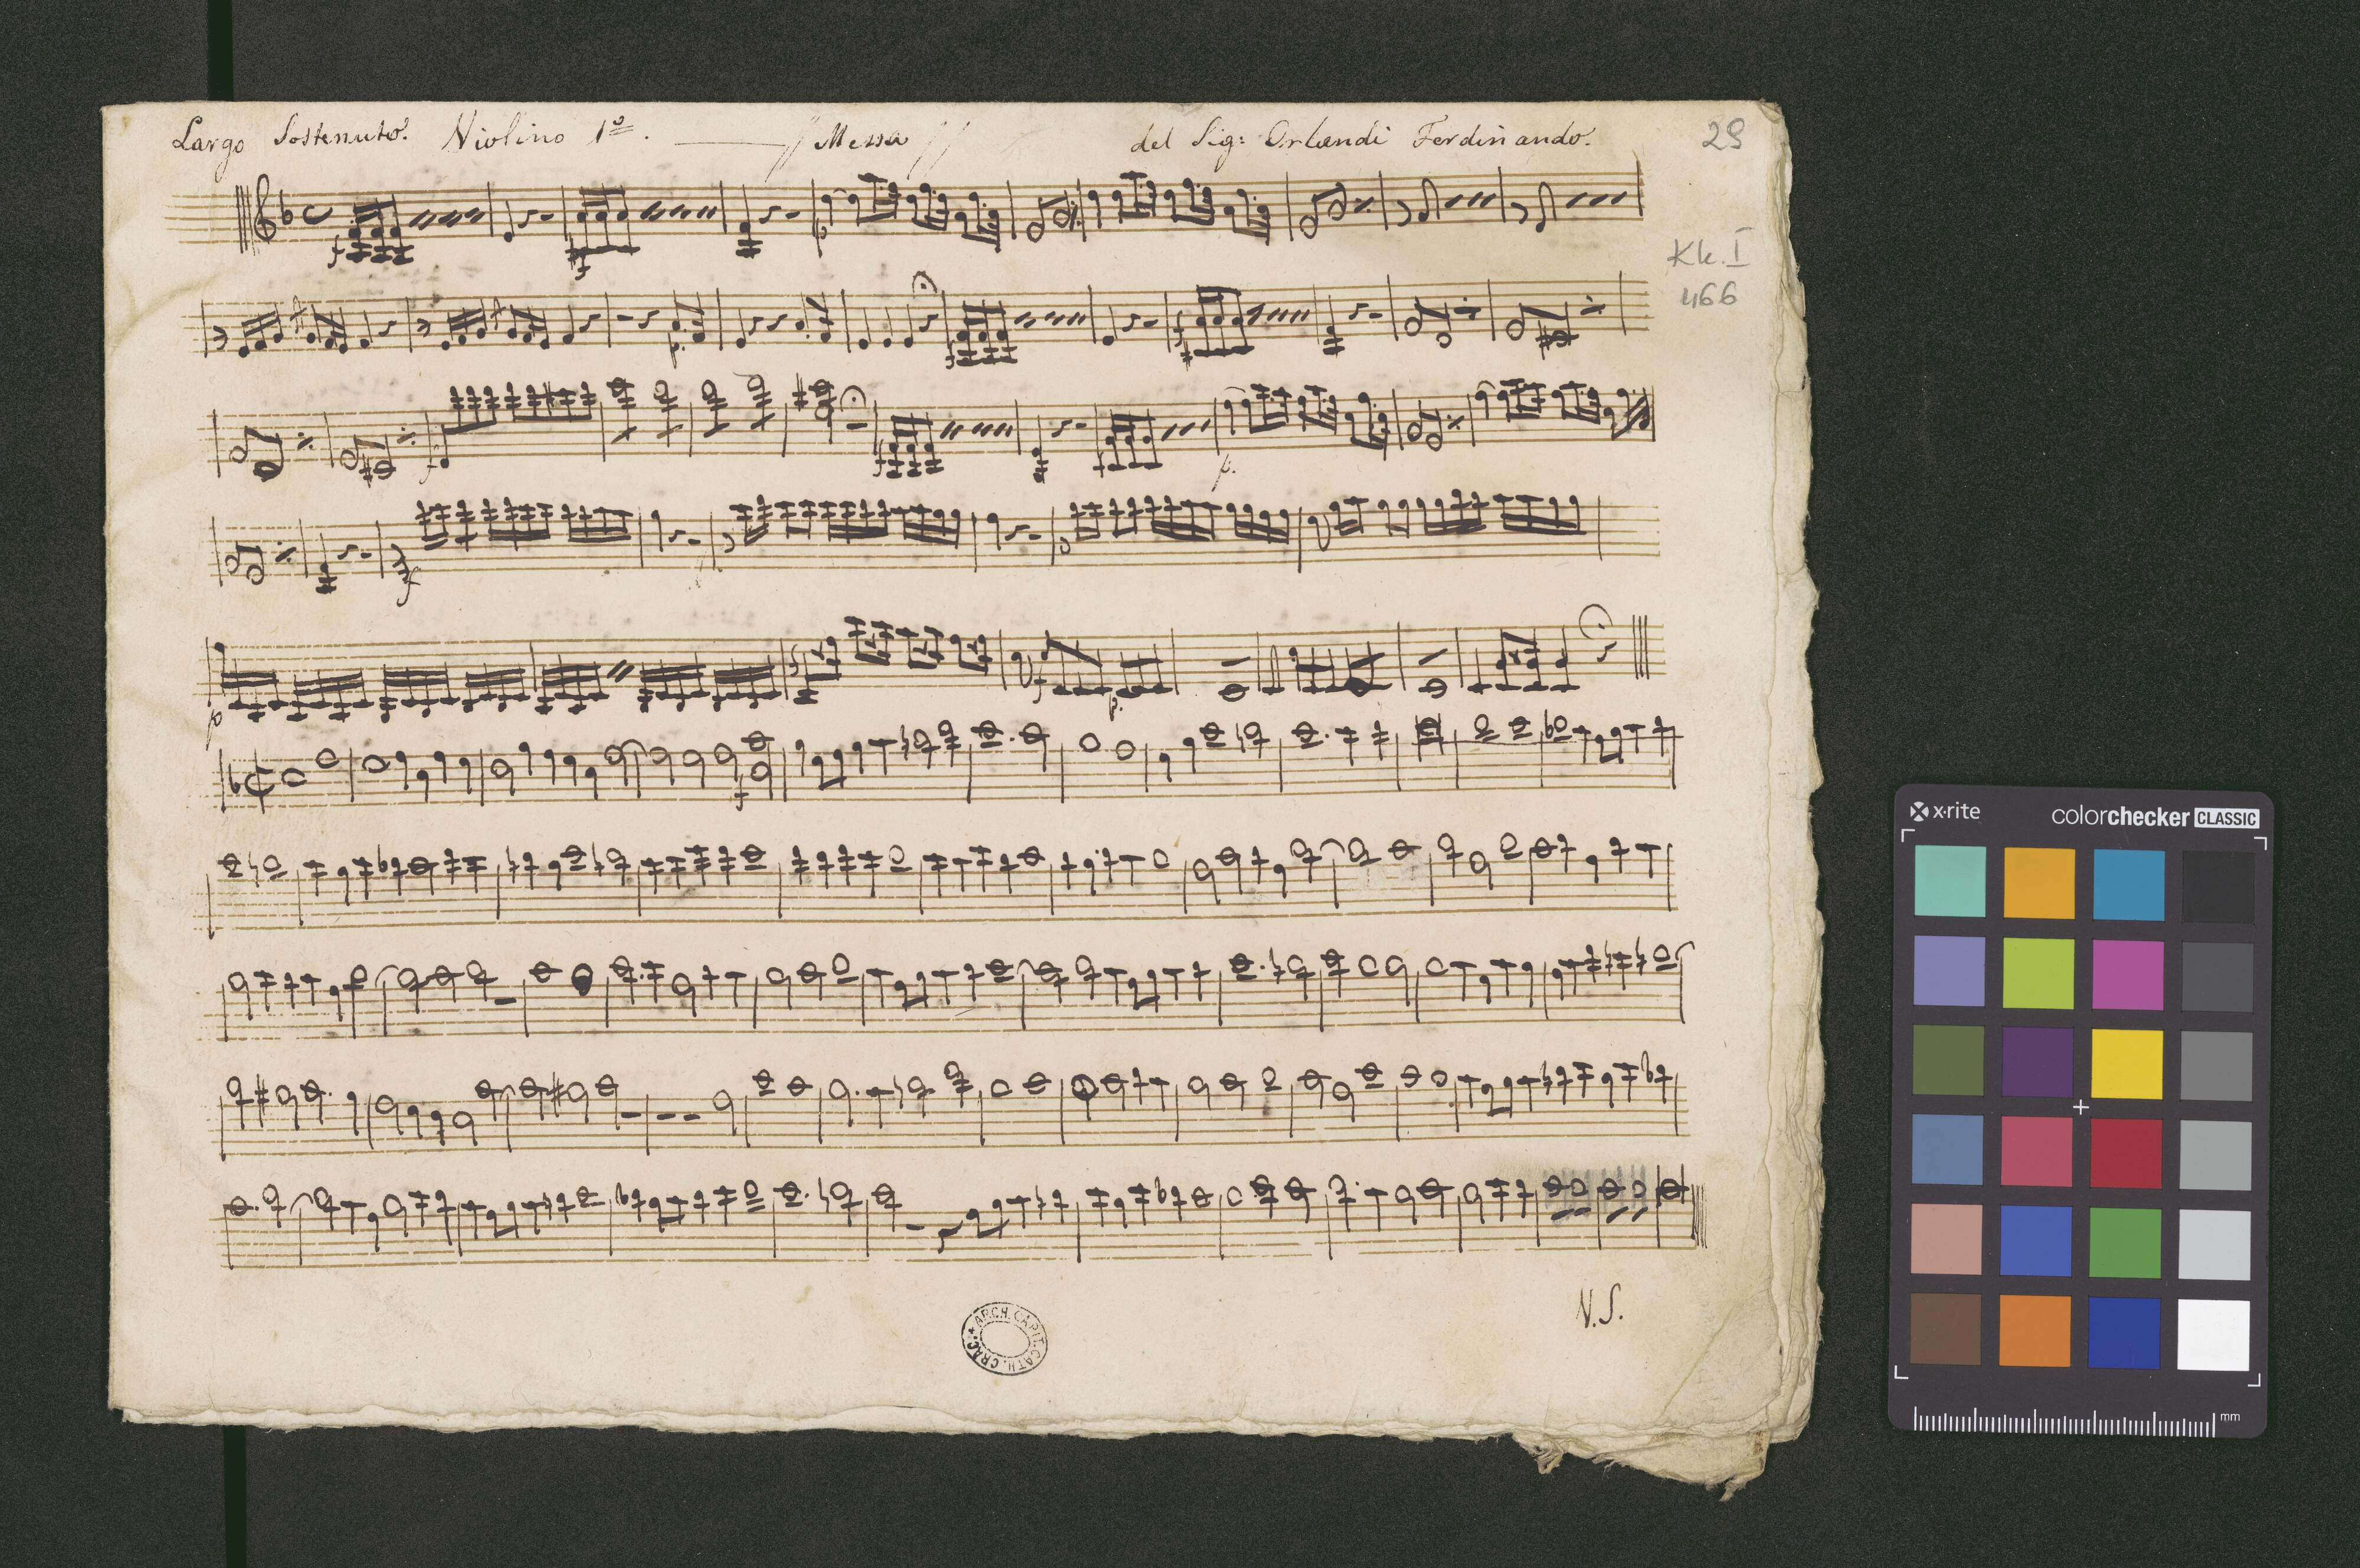 Largo Sostenuto. Violino 1º. Messa del Sig: Orlandi Ferdinando. 29
Kk. I
466
N.S.
ARCH. CAPIT. CATH. CRAC.
x-rite colorchecker CLASSIC
mm